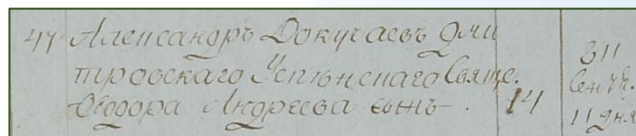 47 Александръ Докучаевъ дми
тровскаго Успѣнскаго Свяще.
Ѳеодора Андреева сынъ. 14
811
Сентб.
11 дня